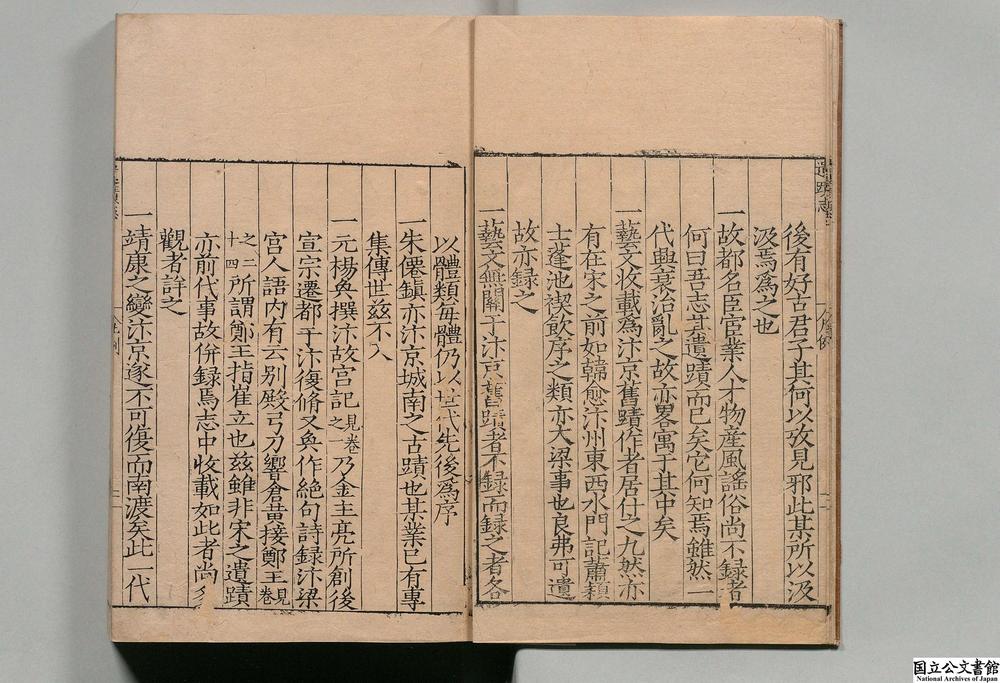 後有好古君子其何以攷見邪此某所以汲
汲焉爲之也
一故都名臣宦業人才物産風謡俗尚不録者
何曰吾志其遺蹟而已矣它何知焉雖然一
代興衰治亂之故亦畧寓于其中矣
一藝文收載爲汴京舊蹟作者居什之九然亦
有在宋之前如韓愈汴州東西水門記蕭穎
士蓬池禊飲序之類亦大梁事也良弗可遺
故亦録之
一藝文無關于汴京舊蹟者不録而録之者各
以體類每體仍以世代先後爲序
一朱僊鎮亦汴京城南之古蹟也某業已有專
集傳世兹不入
一元楊奐撰汴故宮記見卷之一乃金主亮所創後
宣宗遷都于汴復脩又奐作絶句詩録汴梁
宮人語内有云别殿弓刀響倉黄接鄭王見卷
之二十四所謂鄭王指崔立也兹雖非宋之遺蹟
亦前代事故併録焉志中收載如此者尚多
觀者詳之
一靖康之變汴京遂不可復而南渡矣此一代
国立公文書館
National Archives of Japan